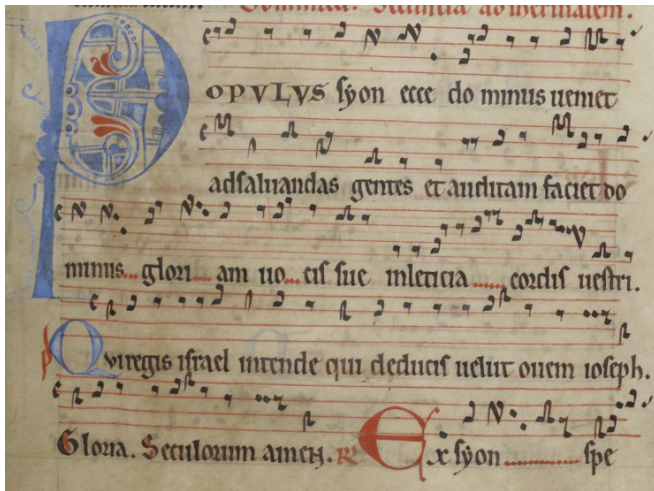 Dominica. Secunda
POPVLVS syon ecce do minus ueniet
adsaluandas gentes et auditam faciet do
minus... glori... am uo... cis sue inleticia ...... cordis uestri.
Quiregis israel intende qui deducis uelut ouem ioseph.
Gloria. Seculorum amen. R Ex syon ............ spe